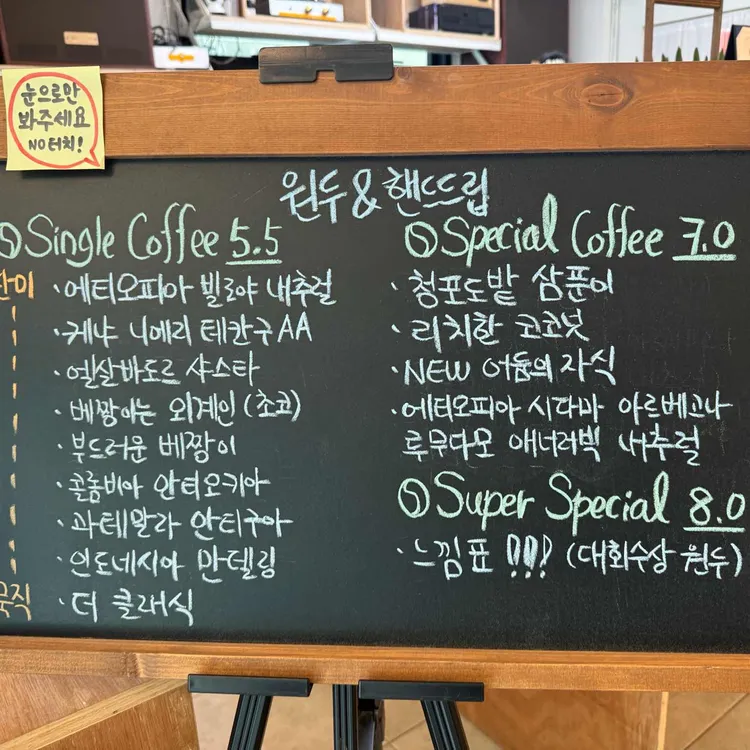 눈으로만
봐주세요
NO터치!
원두 & 핸드드립
Single Coffee 5.5
산미
· 에티오피아 빌로야 내추럴
· 케냐 니에리 테칸구 AA
· 엘살바도르 샤스타
· 베짱이는 외계인 (초코)
· 부드러운 베짱이
· 콜롬비아 안티오키아
· 과테말라 안티구아
· 인도네시아 만델링
묵직
· 더 클래식
Special Coffee 7.0
· 청포도밭 삼푼이
· 리치한 코코넛
· NEW 어둠의 자식
· 에티오피아 시다마 아르베고나
루무다모 애너러빅 내추럴
Super Special 8.0
· 느낌표 !!! (대회수상 원두)